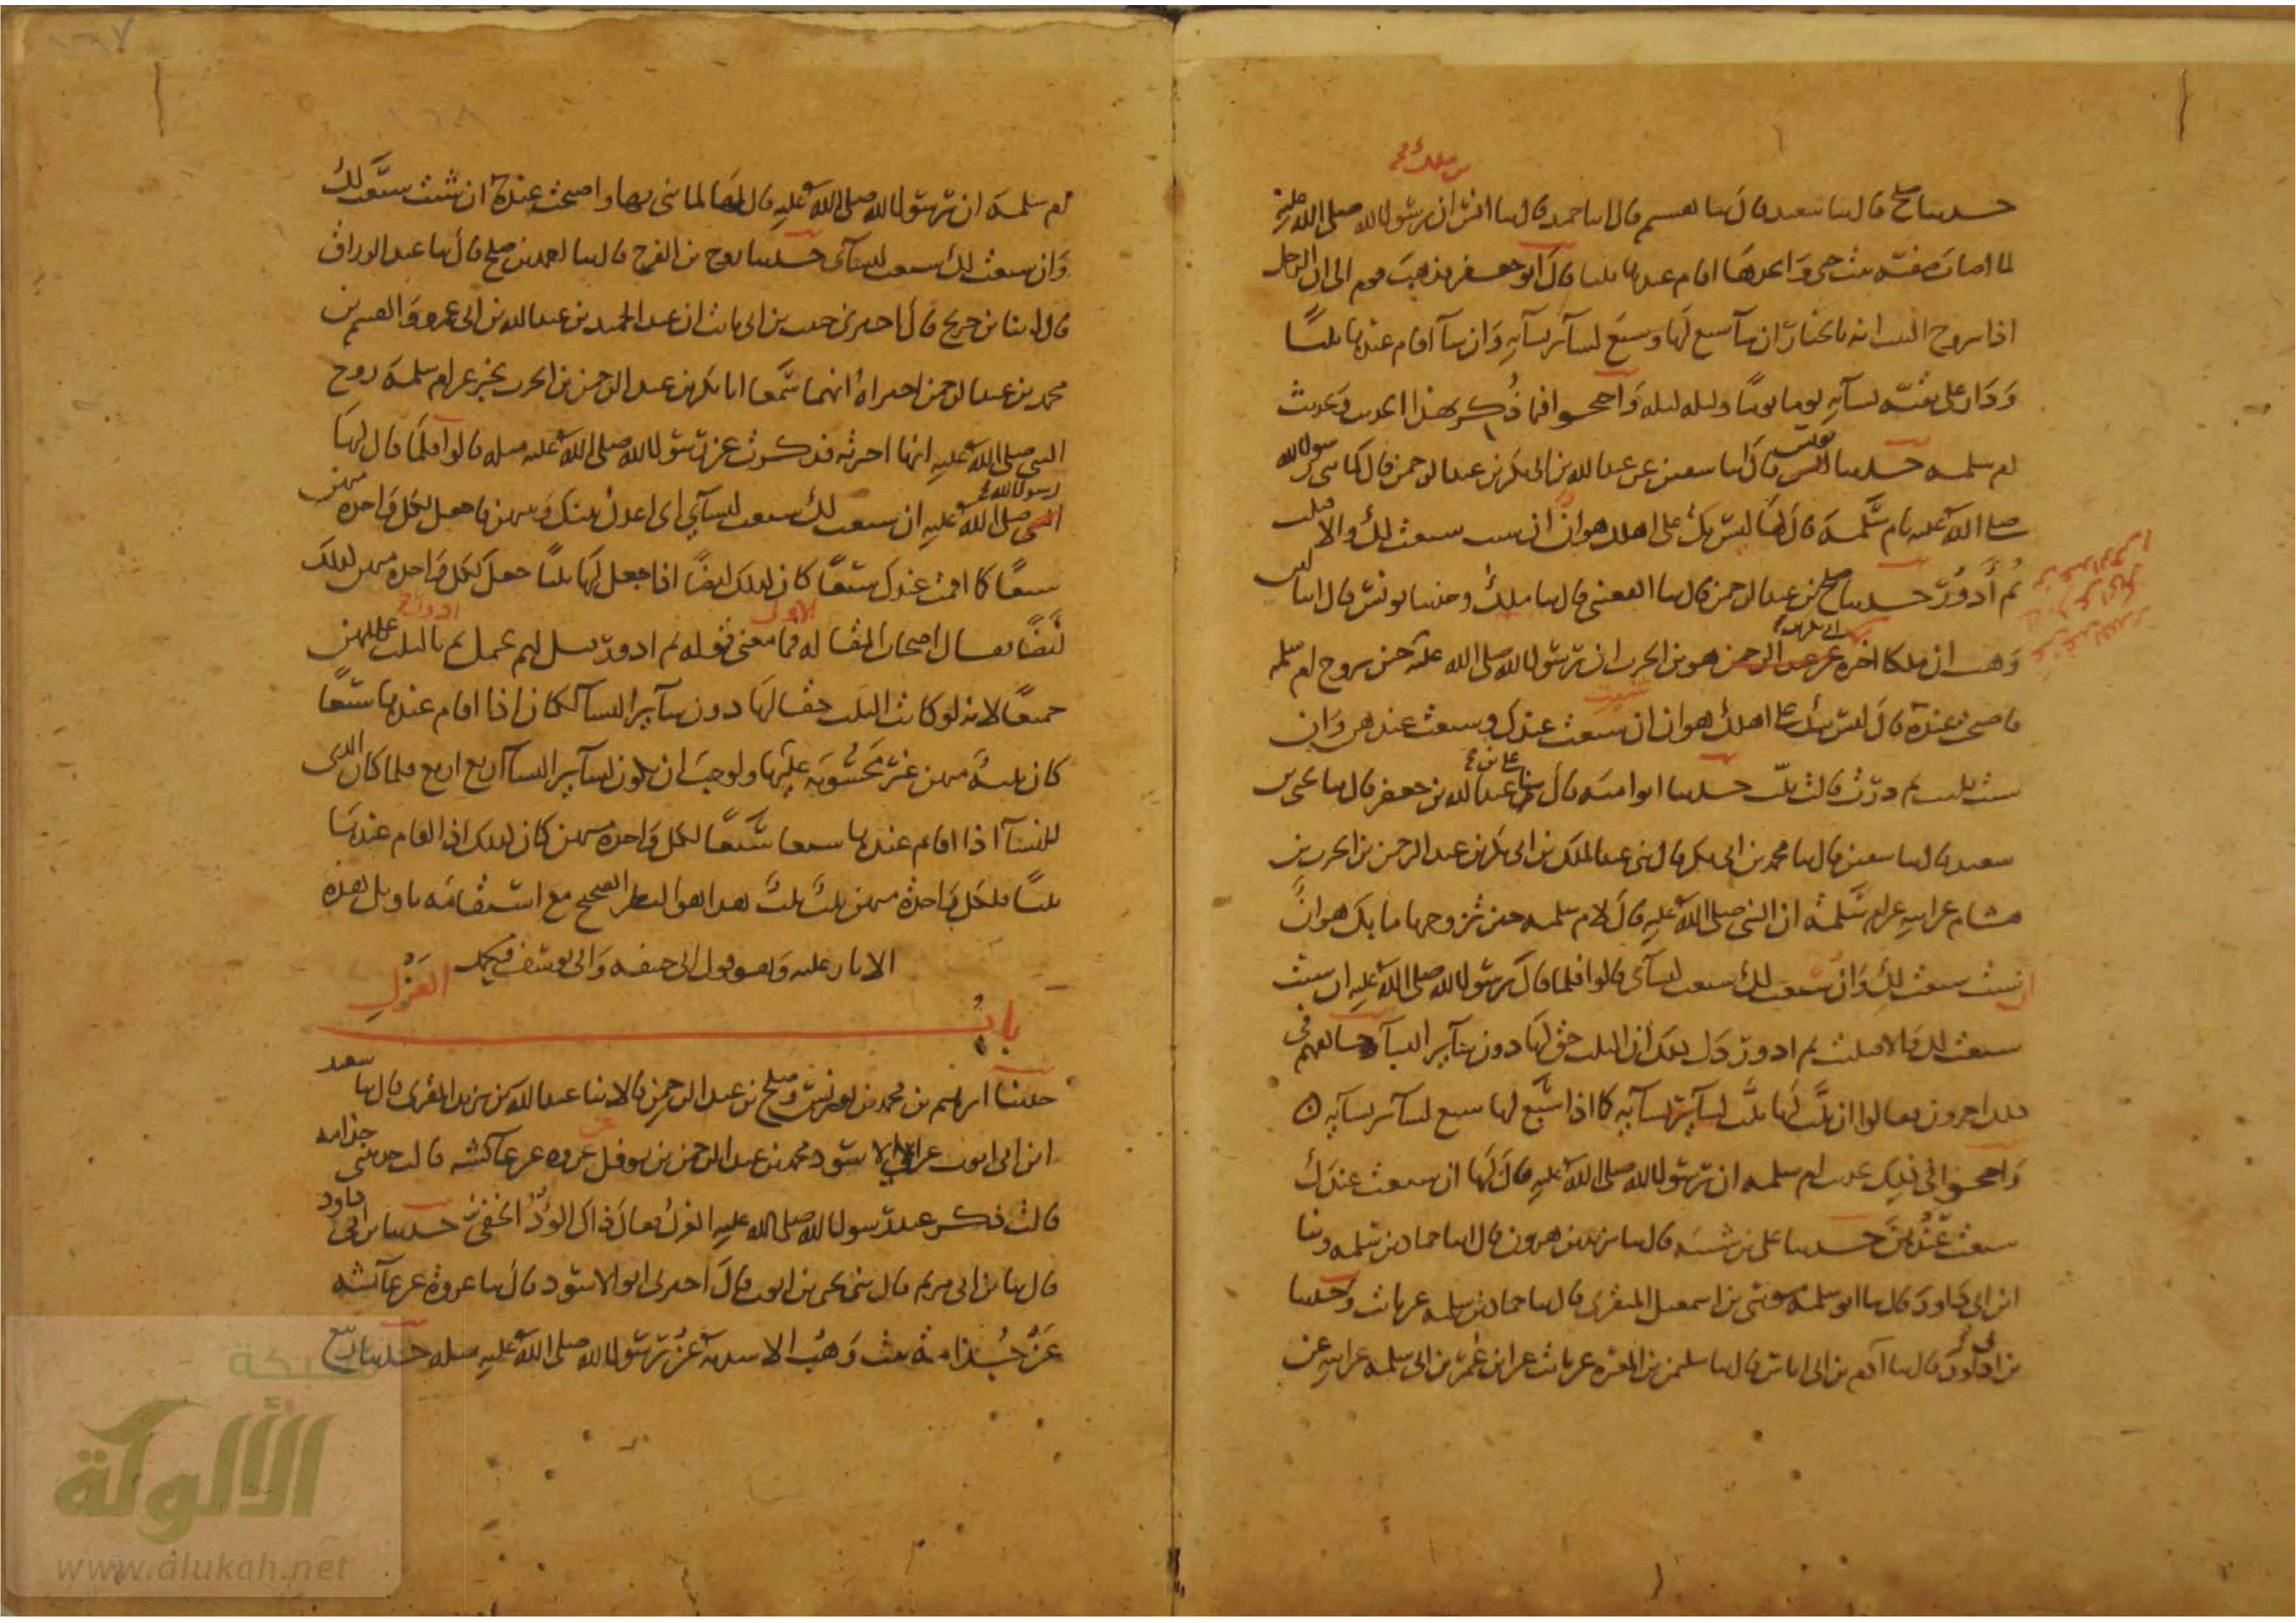 بن ملك
حدثنا صلح قال ثنا سعيد قال ثنا هشيم قال انا حميد قال ثنا انس ان رسول الله صلى الله عليه
لما اصاب صفية بنت حيي واتخذها اقام عندها ثلثا قال ابو جعفر فذهب قوم الى ان الرجل
اذا تزوج الثيب انه بالخيار ان شآ سبع لها وسبع لسآئر نسآيه وان شآ اقام عندها ثلثًا
ودار على بقية نسآيه يوما يومًا وليله ليله واحتجوا فيما ذكر بهذا الحديث وبحديث
ام سلمه حدثنا يونس قال انا سفين عن عبد الله بن ابى بكر بن عبد الرحمن قال لما بنى رسول الله
صلى الله عليه بام سلمة قال لها ليس بك على اهلك هوان ان شيت سبعت لك والا فثلثت
ثم أدور حدثنا صلح بن عبد الرحمن قال ثنا القعنبى قال ثنا ملك وحدثنا يونس قال انا ابن
وهب ان ملكا اخبره عن عبد الرحمن هو بن الحرث ان رسول الله صلى الله عليه حين تزوج ام سلمه
فاصبحت عنده قال ليس بك على اهلك هوان ان شيت سبعت عندك وسبعت عندهن وان
شيت ثلثت ثم درت قالت ثلث حدثنا ابو اميه قال ثنا على بن عبد الله بن جعفر قال ثنا يحيى بن
سعيد قال ثنا سفين قال ثنا محمد بن ابى بكر قال ثنى عبد الملك بن ابى بكر بن عبد الرحمن بن الحرث بن
هشام عن ابيه عن ام سلمة ان النبى صلى الله عليه قال لام سلمه حين تزوجها ما بك هوانٌ
ان شيت سبعت لك وان سبعت لك سبعت لنسآى قالوا فلما قال رسول الله صلى الله عليه ان شيت
سبعت لك والا فثلثت ثم ادور دل ذلك ان الثلث حق لها دون سآير النسآ وخالفهم فى
ذلك اخرون فقالوا ان ثلّث لها ثلّث لسآير نسآيه كما اذا سبّع لها سبع لسآئر نسآيه ٥
واحتجوا فى ذلك بحديث ام سلمه ان رسول الله صلى الله عليه قال لها ان سبعت عندك
سبعت عندهن حدثنا على بن شيبه قال ثنا يزيد بن هرون قال انا حماد بن سلمه وثنا
ابن ابى داود قال ثنا ابو سلمه موسى بن اسمعيل المنقرى قال ثنا حماد بن سلمه عن ثابت وحدثنا
بن ابى داود قال ثنا آدم بن ابى اياس قال ثنا سليمن بن المغيره عن ثابت عن ابن عمر بن ابى سلمه عن ابيه عن
١٦٧
١٦٨
ام سلمة ان رسول الله صلى الله عليه قال لها لما بنى بها واصبحت عنده ان شئت سبّعت لك
وان سبعت لك سبعت لنسآئى حدثنا روح بن الفرج قال ثنا احمد بن صلح قال ثنا عبد الرزاق
قال انبنا بن جريج قال اخبرنى حبيب بن ابى ثابت ان عبد الحميد بن عبد الله بن ابى عمرو والقسم بن
محمد بن عبد الرحمن اخبراه انهما سمعا ابا بكر بن عبد الرحمن بن الحرث يخبر عن ام سلمة زوج
النبى صلى الله عليه انها اخبرته فذكرت عن رسول الله صلى الله عليه مثله قالوا فلما قال لها
رسول الله صلى الله عليه ان سبعت لك سبعت لنسآئي اى اعدل بينك وبينهن فاجعل لكل واحدة منهن
سبعًا كما اقمت عندك سبعًا كان كذلك ايضًا اذا جعل لها ثلثًا جعل لكل واحدة منهن كذلك
ايضًا فقال اصحاب المقاله الاولى فما معنى قوله ثم ادور قيل لهم يحتمل ثم ادور بالثلث عليهن
جميعًا لانه لو كانت الثلث حقا لها دون سآير النسآ لكان اذا اقام عندها سبعًا
كان ثلثة منهن غير محسوبة عليها ولوجب ان يكون لسآير النسآ اربع اربع فلما كان الذى
للنسآ اذا اقام عندها سبعا سبعًا لكل واحدة منهن كان كذلك اذا اقام عندها
ثلثًا فلكل واحدة منهن ثلث ثلث هذا هو النظر الصحيح مع استقامة تاويل هذه
الاثار عليه وهو قول ابى حنيفه وابى يوسف ومحمد
بابُ العَزْلِ
حدثنا ابرهيم بن محمد بن يونس وصلح بن عبد الرحمن قالا ثنا عبد الله بن يزيد المقرى قال ثنا سعيد
ابن ابى ايوب عن ابى الاسود محمد بن عبد الرحمن بن نوفل عن عروه عن عآئشه قالت حدثتنى جذامه
قالت ذكر عند رسول الله صلى الله عليه العزل فقال ذاك الوَدُّ الخفى حدثنا بن ابى داود
قال ثنا بن ابى مريم قال ثنى يحيى بن ايوب قال اخبرنى ابو الاسود قال ثنا عروة عن عآئشه
عن جُذامة بنت وهب الاسديه عن رسول الله صلى الله عليه مثله حدثنا ربيع
شبكة
الألوكة
www.alukah.net